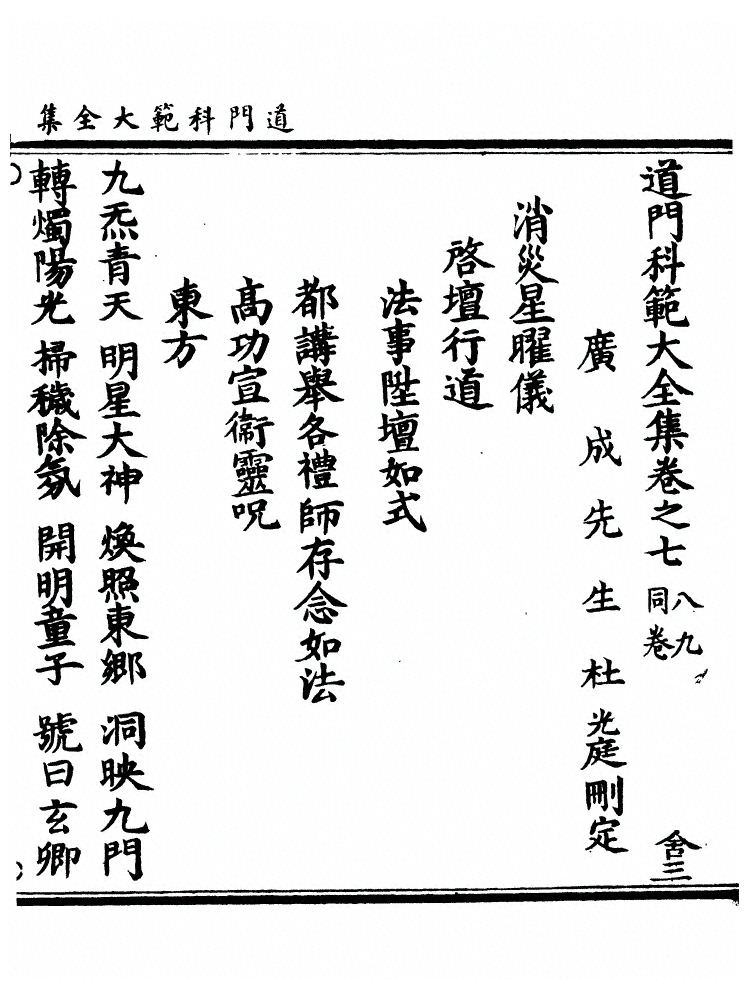 道門科範大全集
道門科範大全集卷之七 八九同卷 舍三
廣成先生杜光庭刪定
消災星曜儀
啓壇行道
法事陞壇如式
都講舉各禮師存念如法
高功宣衞靈呪
東方
九炁青天 明星大神 煥照東鄉 洞映九門
轉燭陽光 掃穢除氛 開明童子 號曰玄卿